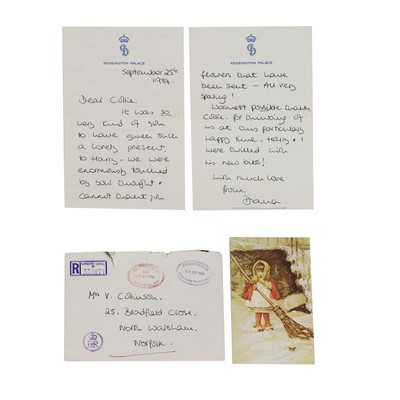 KENSINGTON PALACE
September 25th
1984
Dear Collie,
It was so
very kind of you
to have given such
a lovely present,
to Harry - we were
enormously touched
by your thought &
cannot thank you
KENSINGTON PALACE
flowers that have
been sent - all very
Warmest possible thanks
Collie, for thinking of
us at this particularly
happy time. Harry &
were thrilled with
his new bibs!
With much love
from,
Diana
R
Mrs V. Collinson,
25, Bradfield Close,
North Walsham,
Norfolk